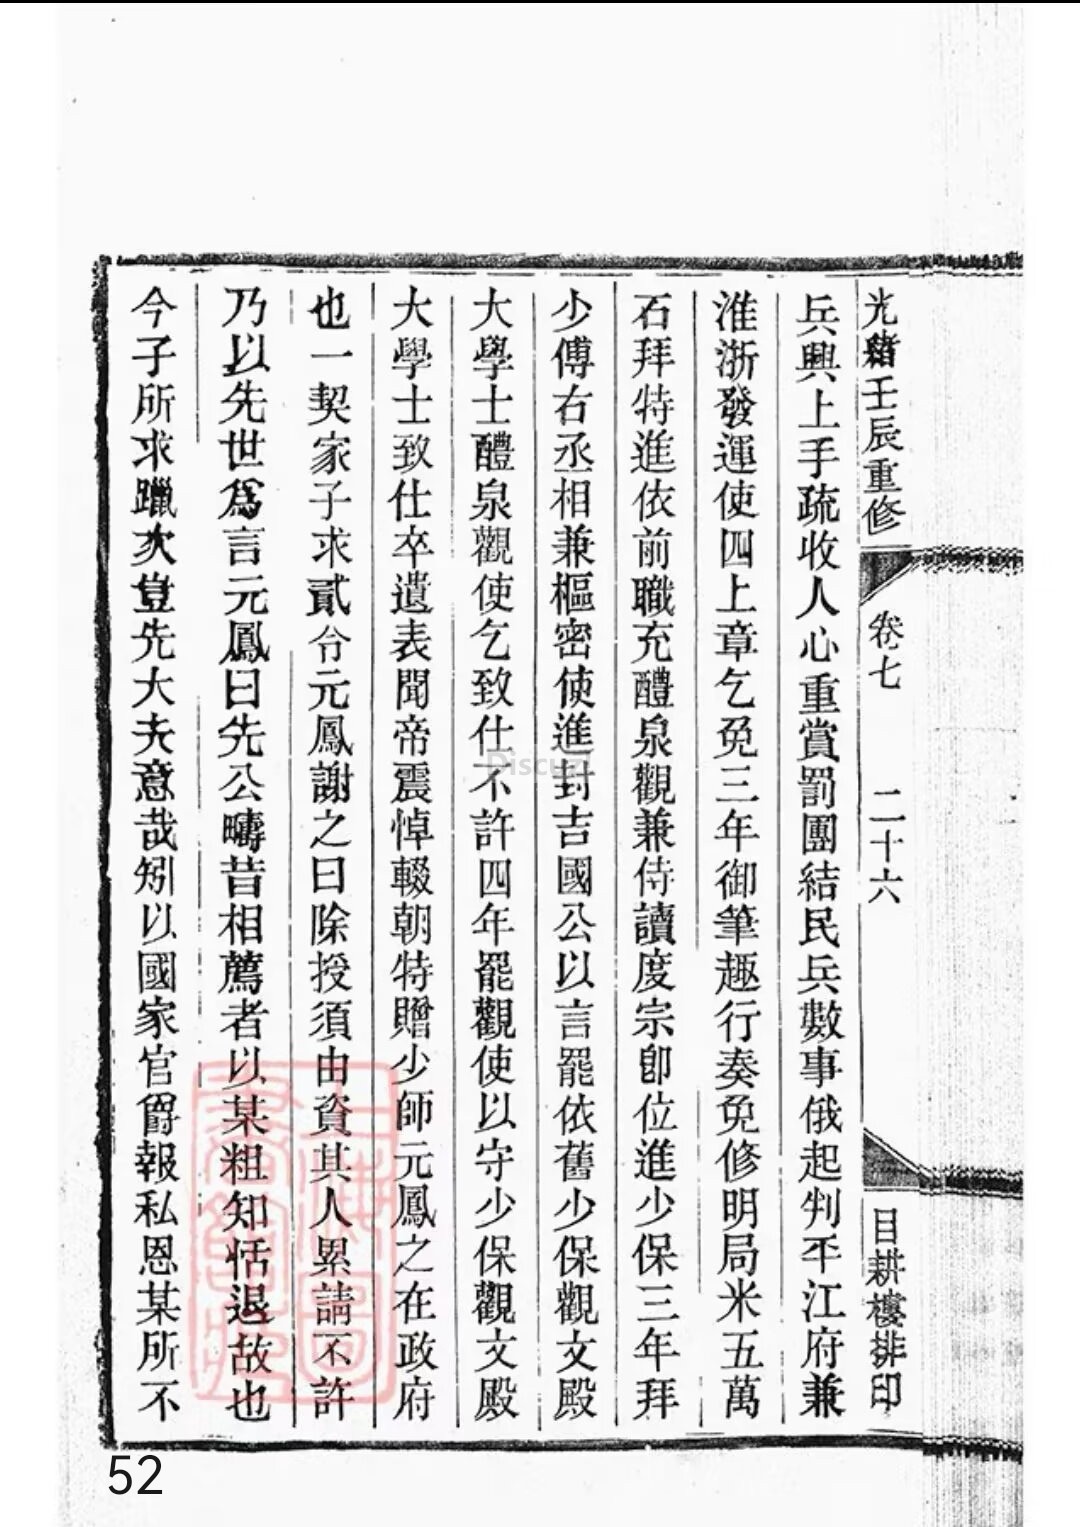 光緒壬辰重修
卷七
二十六
目耕樓排印
兵興上手疏收人心重賞罰團結民兵數事俄起判平江府兼
淮浙發運使四上章乞免三年御筆趣行奏免修明局米五萬
石拜特進依前職充醴泉觀兼侍讀度宗卽位進少保三年拜
少傅右丞相兼樞密使進封吉國公以言罷依舊少保觀文殿
大學士醴泉觀使乞致仕不許四年罷觀使以守少保觀文殿
大學士致仕卒遺表聞帝震悼輟朝特贈少師元鳳之在政府
也一契家子求貳令元鳳謝之曰除授須由資其人累請不許
乃以先世爲言元鳳曰先公疇昔相薦者以某粗知恬退故也
今子所求躐次豈先大夫意哉矧以國家官爵報私恩某所不
上海圖書館藏
Discuz!
52